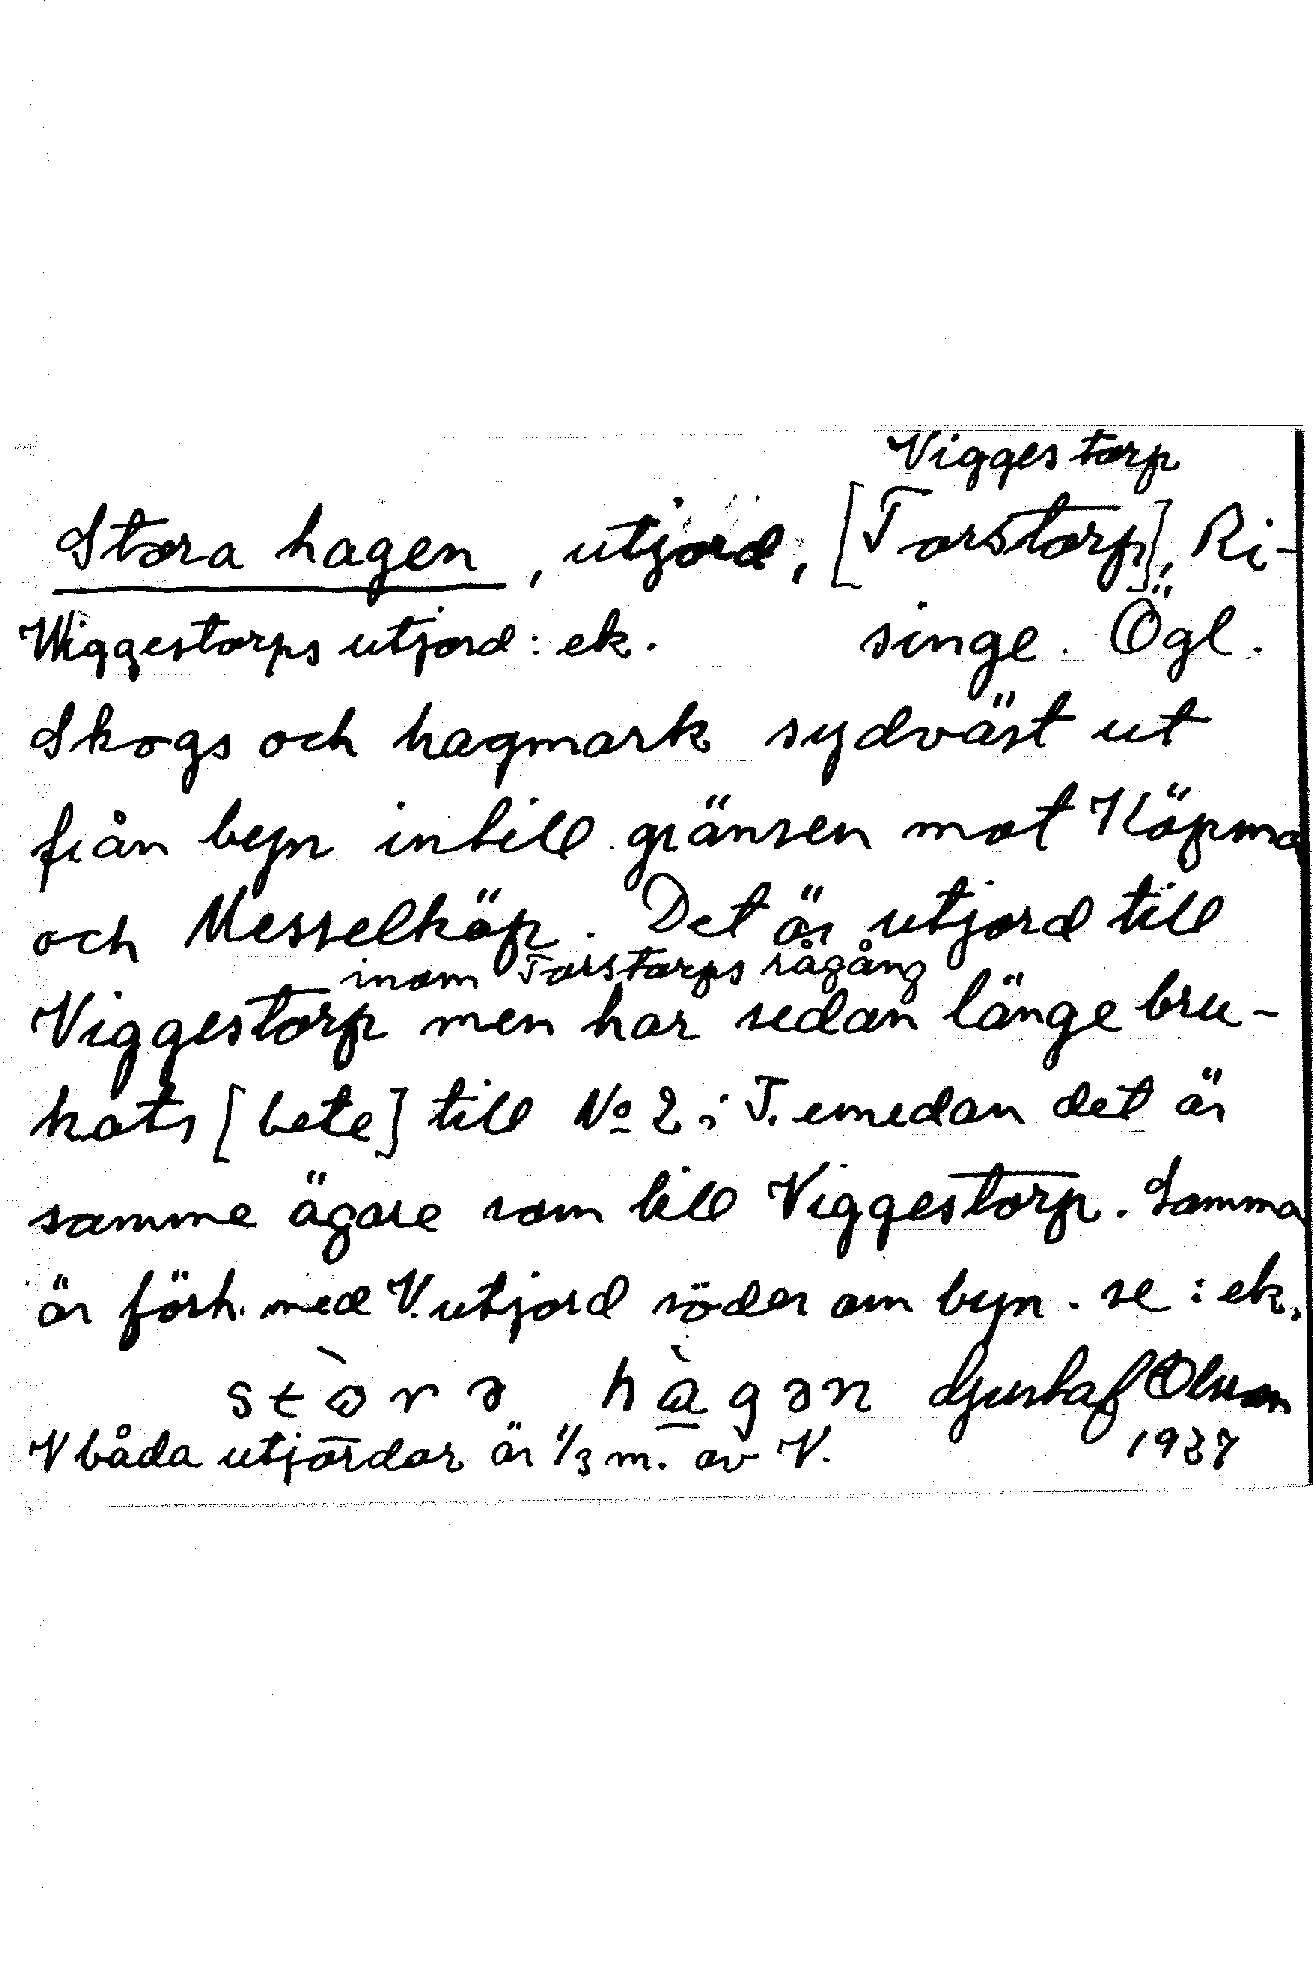 Viggestorp
Stora hagen, utjord, [Torstorp], Ri-
Wiggestorps utjord: ek. singe. Ögl.
Skogs och hagmark sydväst ut
från byn intill gränsen mot Köpma
och Messelköp. Det är utjord till
inom Torstorps rågång
Viggestorp men har sedan länge bru-
kats [bete] till No 2 i T. emedan det är
samme ägare som till Viggestorp. Samma
är förh. med V. utjord söder om byn. se: ek.
stòra hàgən Gustaf Olsson
V båda utjordar är 1/3 m. av V. 1937